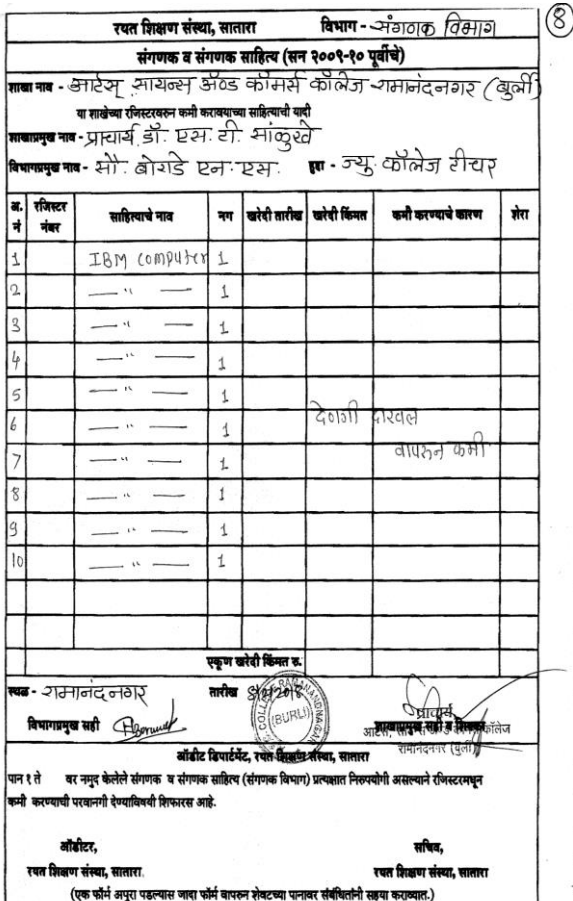 ८
रयत शिक्षण संस्था, सातारा विभाग - संगणक विभाग
संगणक व संगणक साहित्य (सन २००९-१० पूर्वीचे)
शाखा नाव - आर्टस् सायन्स अँण्ड कॉमर्स कॉलेज रामानंदनगर (बुर्ली)
या शाखेच्या रजिस्टरवरुन कमी करावयाच्या साहित्याची यादी
शाखाप्रमुख नाव - प्राचार्य डॉ. एस. टी. साळुंखे
विभागप्रमुख नाव - सौ. बोराडे एन. एस. हुद्दा - ज्यु. कॉलेज टीचर
अ. नं रजिस्टर नंबर साहित्याचे नाव नग खरेदी तारीख खरेदी किंमत कमी करण्याचे कारण शेरा
1 IBM computer 1
2 — " — 1
3 — " — 1
4 — " — 1
5 — " — 1
6 — " — 1 देणगी दाखल
7 — " — 1 वापरुन कमी
8 — " — 1
9 — " — 1
10 — " — 1
एकूण खरेदी किंमत रु.
स्थळ - रामानंदनगर तारीख
(BURLI)
प्राचार्य
विभागप्रमुख सही शाखाप्रमुख सही व शिक्का
रामानंदनगर (बुर्ली)
ऑडीट डिपार्टमेंट, रयत शिक्षण संस्था, सातारा
पान १ ते वर नमुद केलेले संगणक व संगणक साहित्य (संगणक विभाग) प्रत्यक्षात निरुपयोगी असल्याने रजिस्टरमधून
कमी करण्याची परवानगी देण्याविषयी शिफारस आहे.
ऑडीटर, सचिव,
रयत शिक्षण संस्था, सातारा. रयत शिक्षण संस्था, सातारा
(एक फॉर्म अपुरा पडल्यास जादा फॉर्म वापरुन शेवटच्या पानावर संबंधितांनी सह्या कराव्यात.)